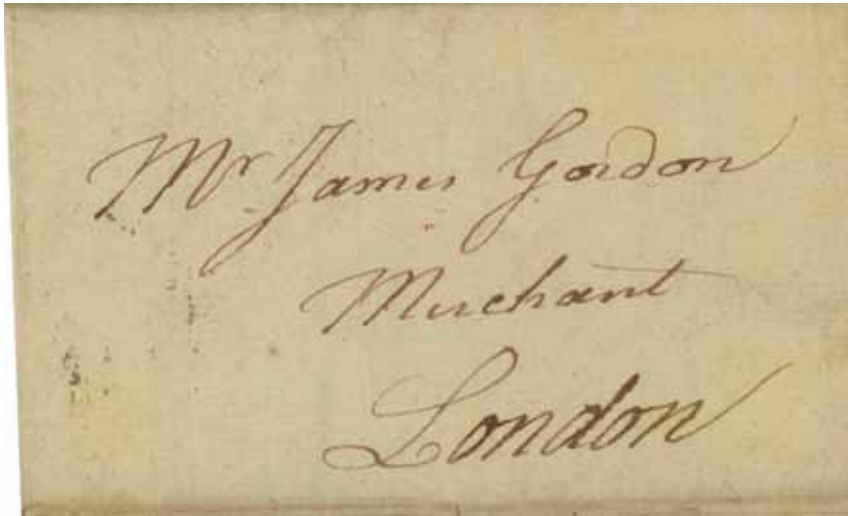 Mr James Gordon
Merchant
London